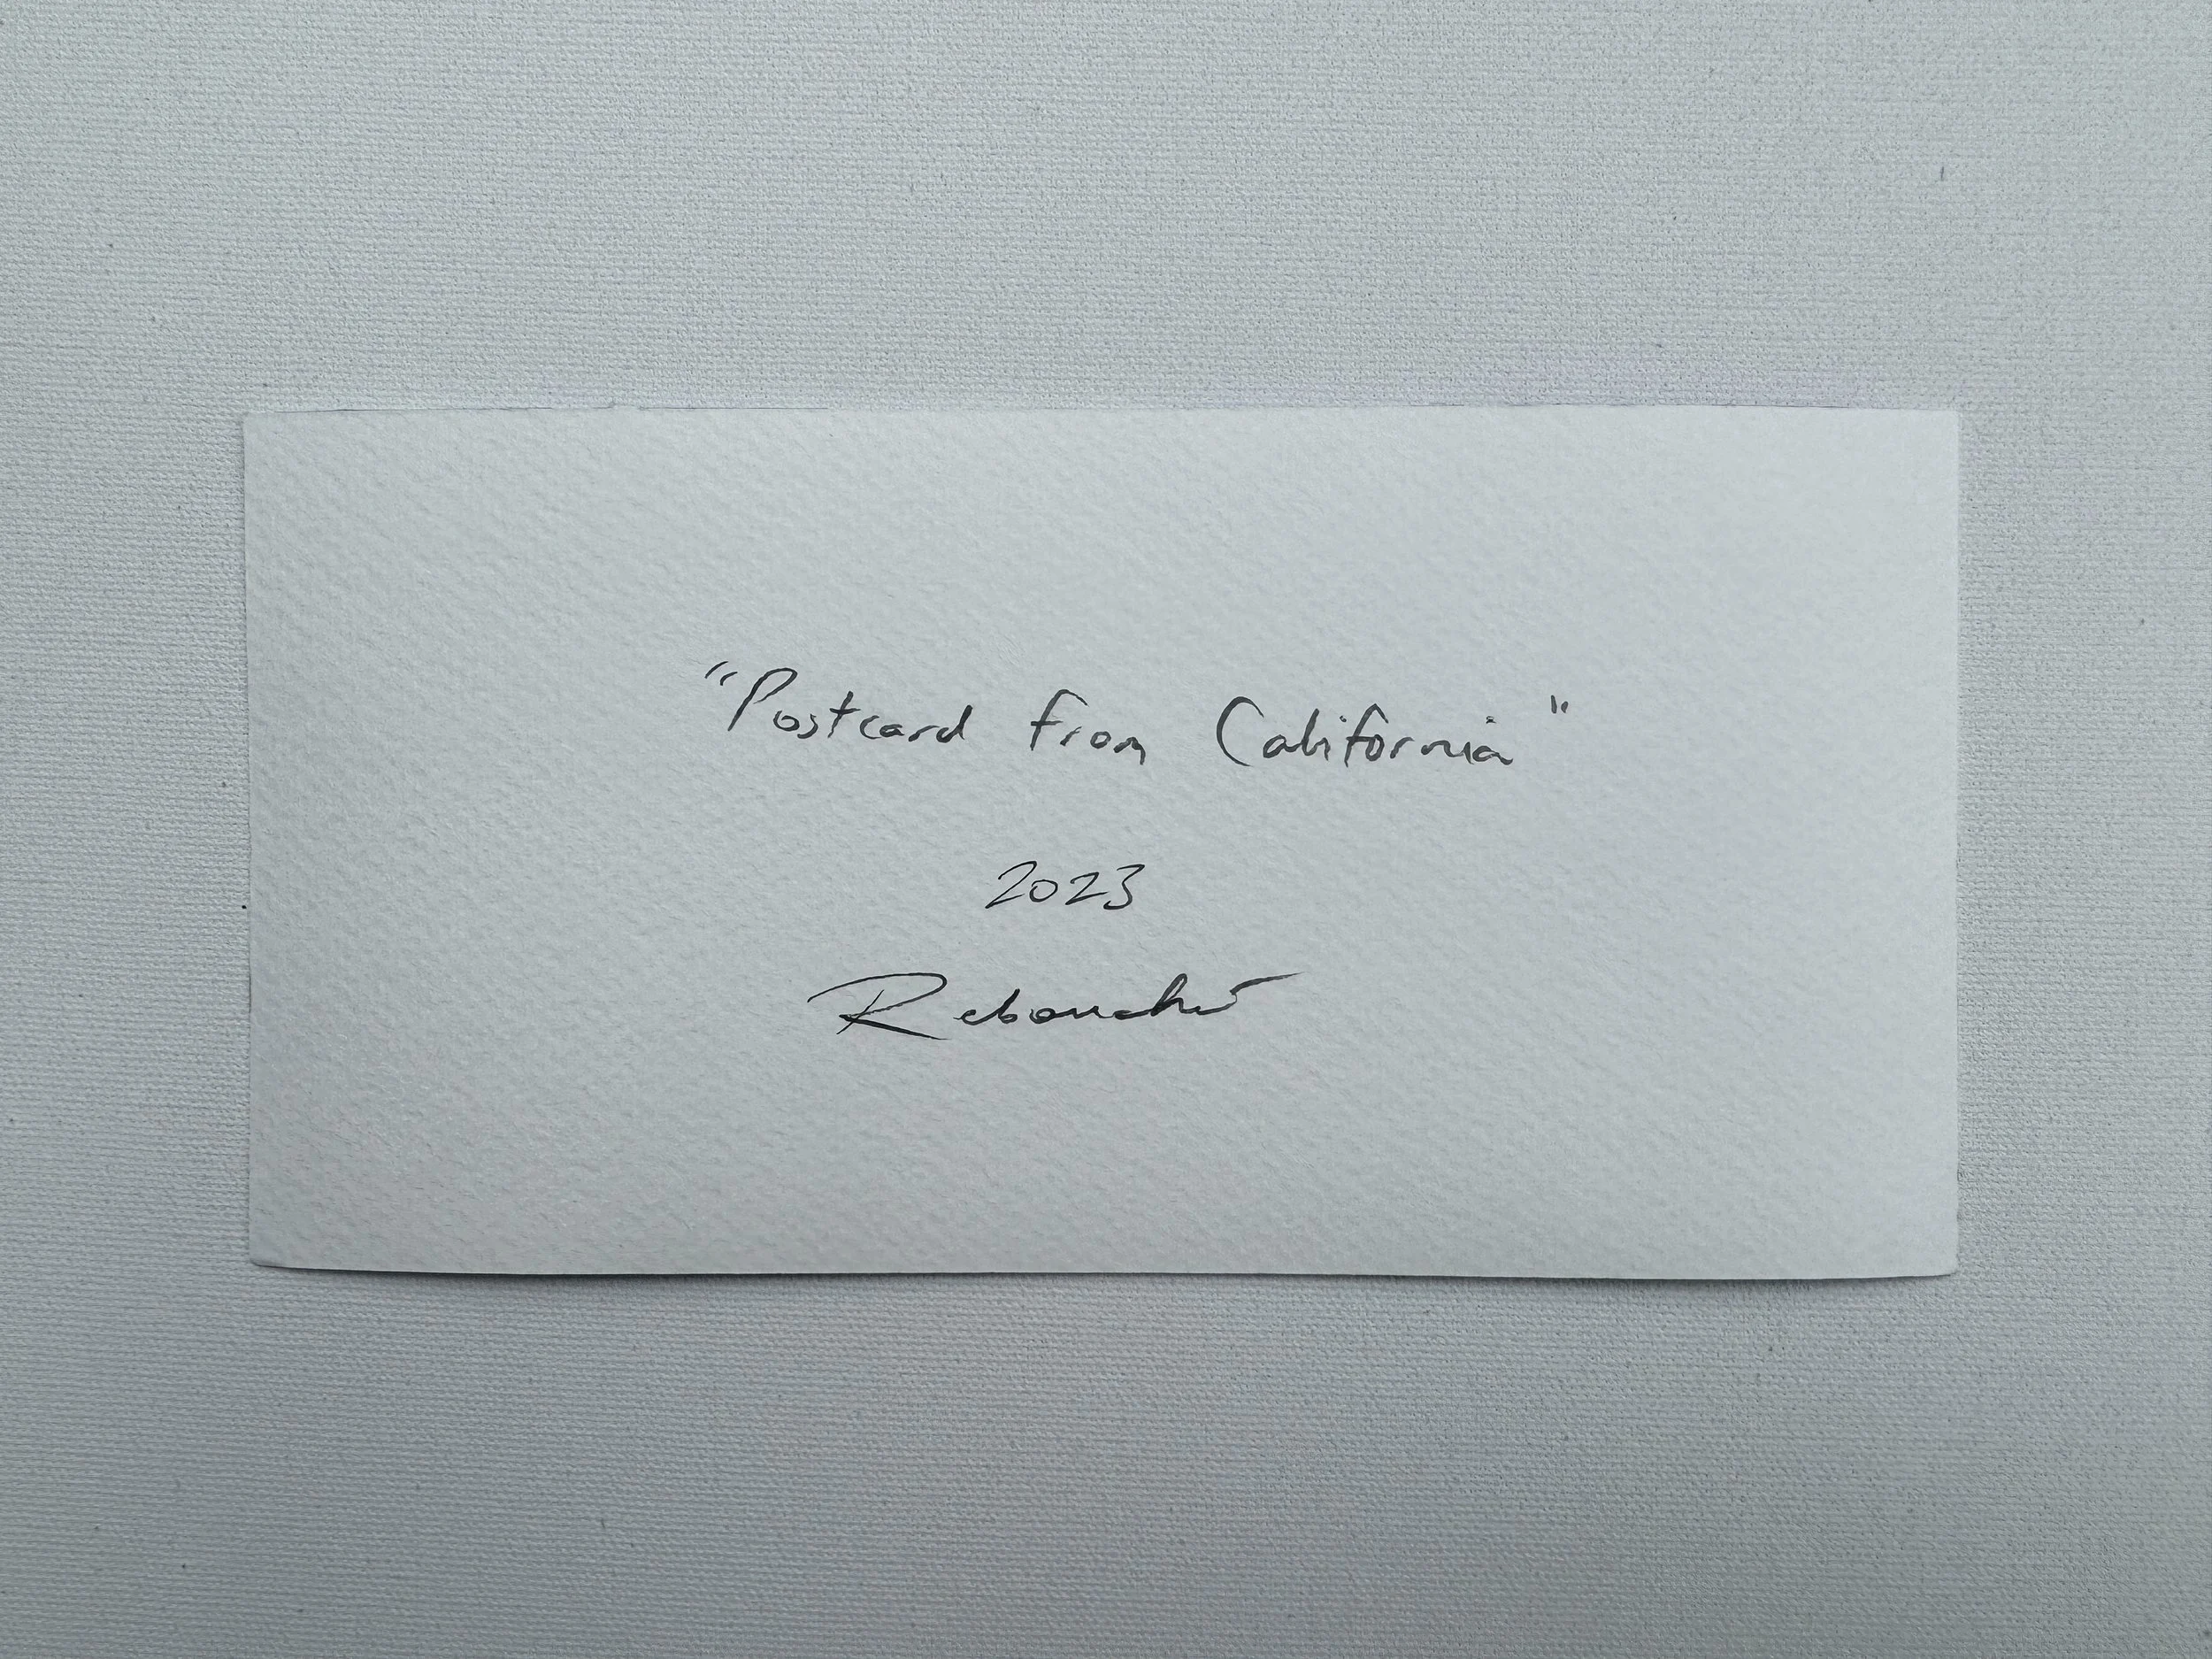 "Postcard from California"
2023
Rebouché